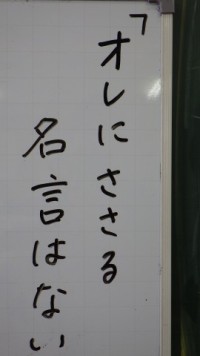 「オレにささる
名言はない